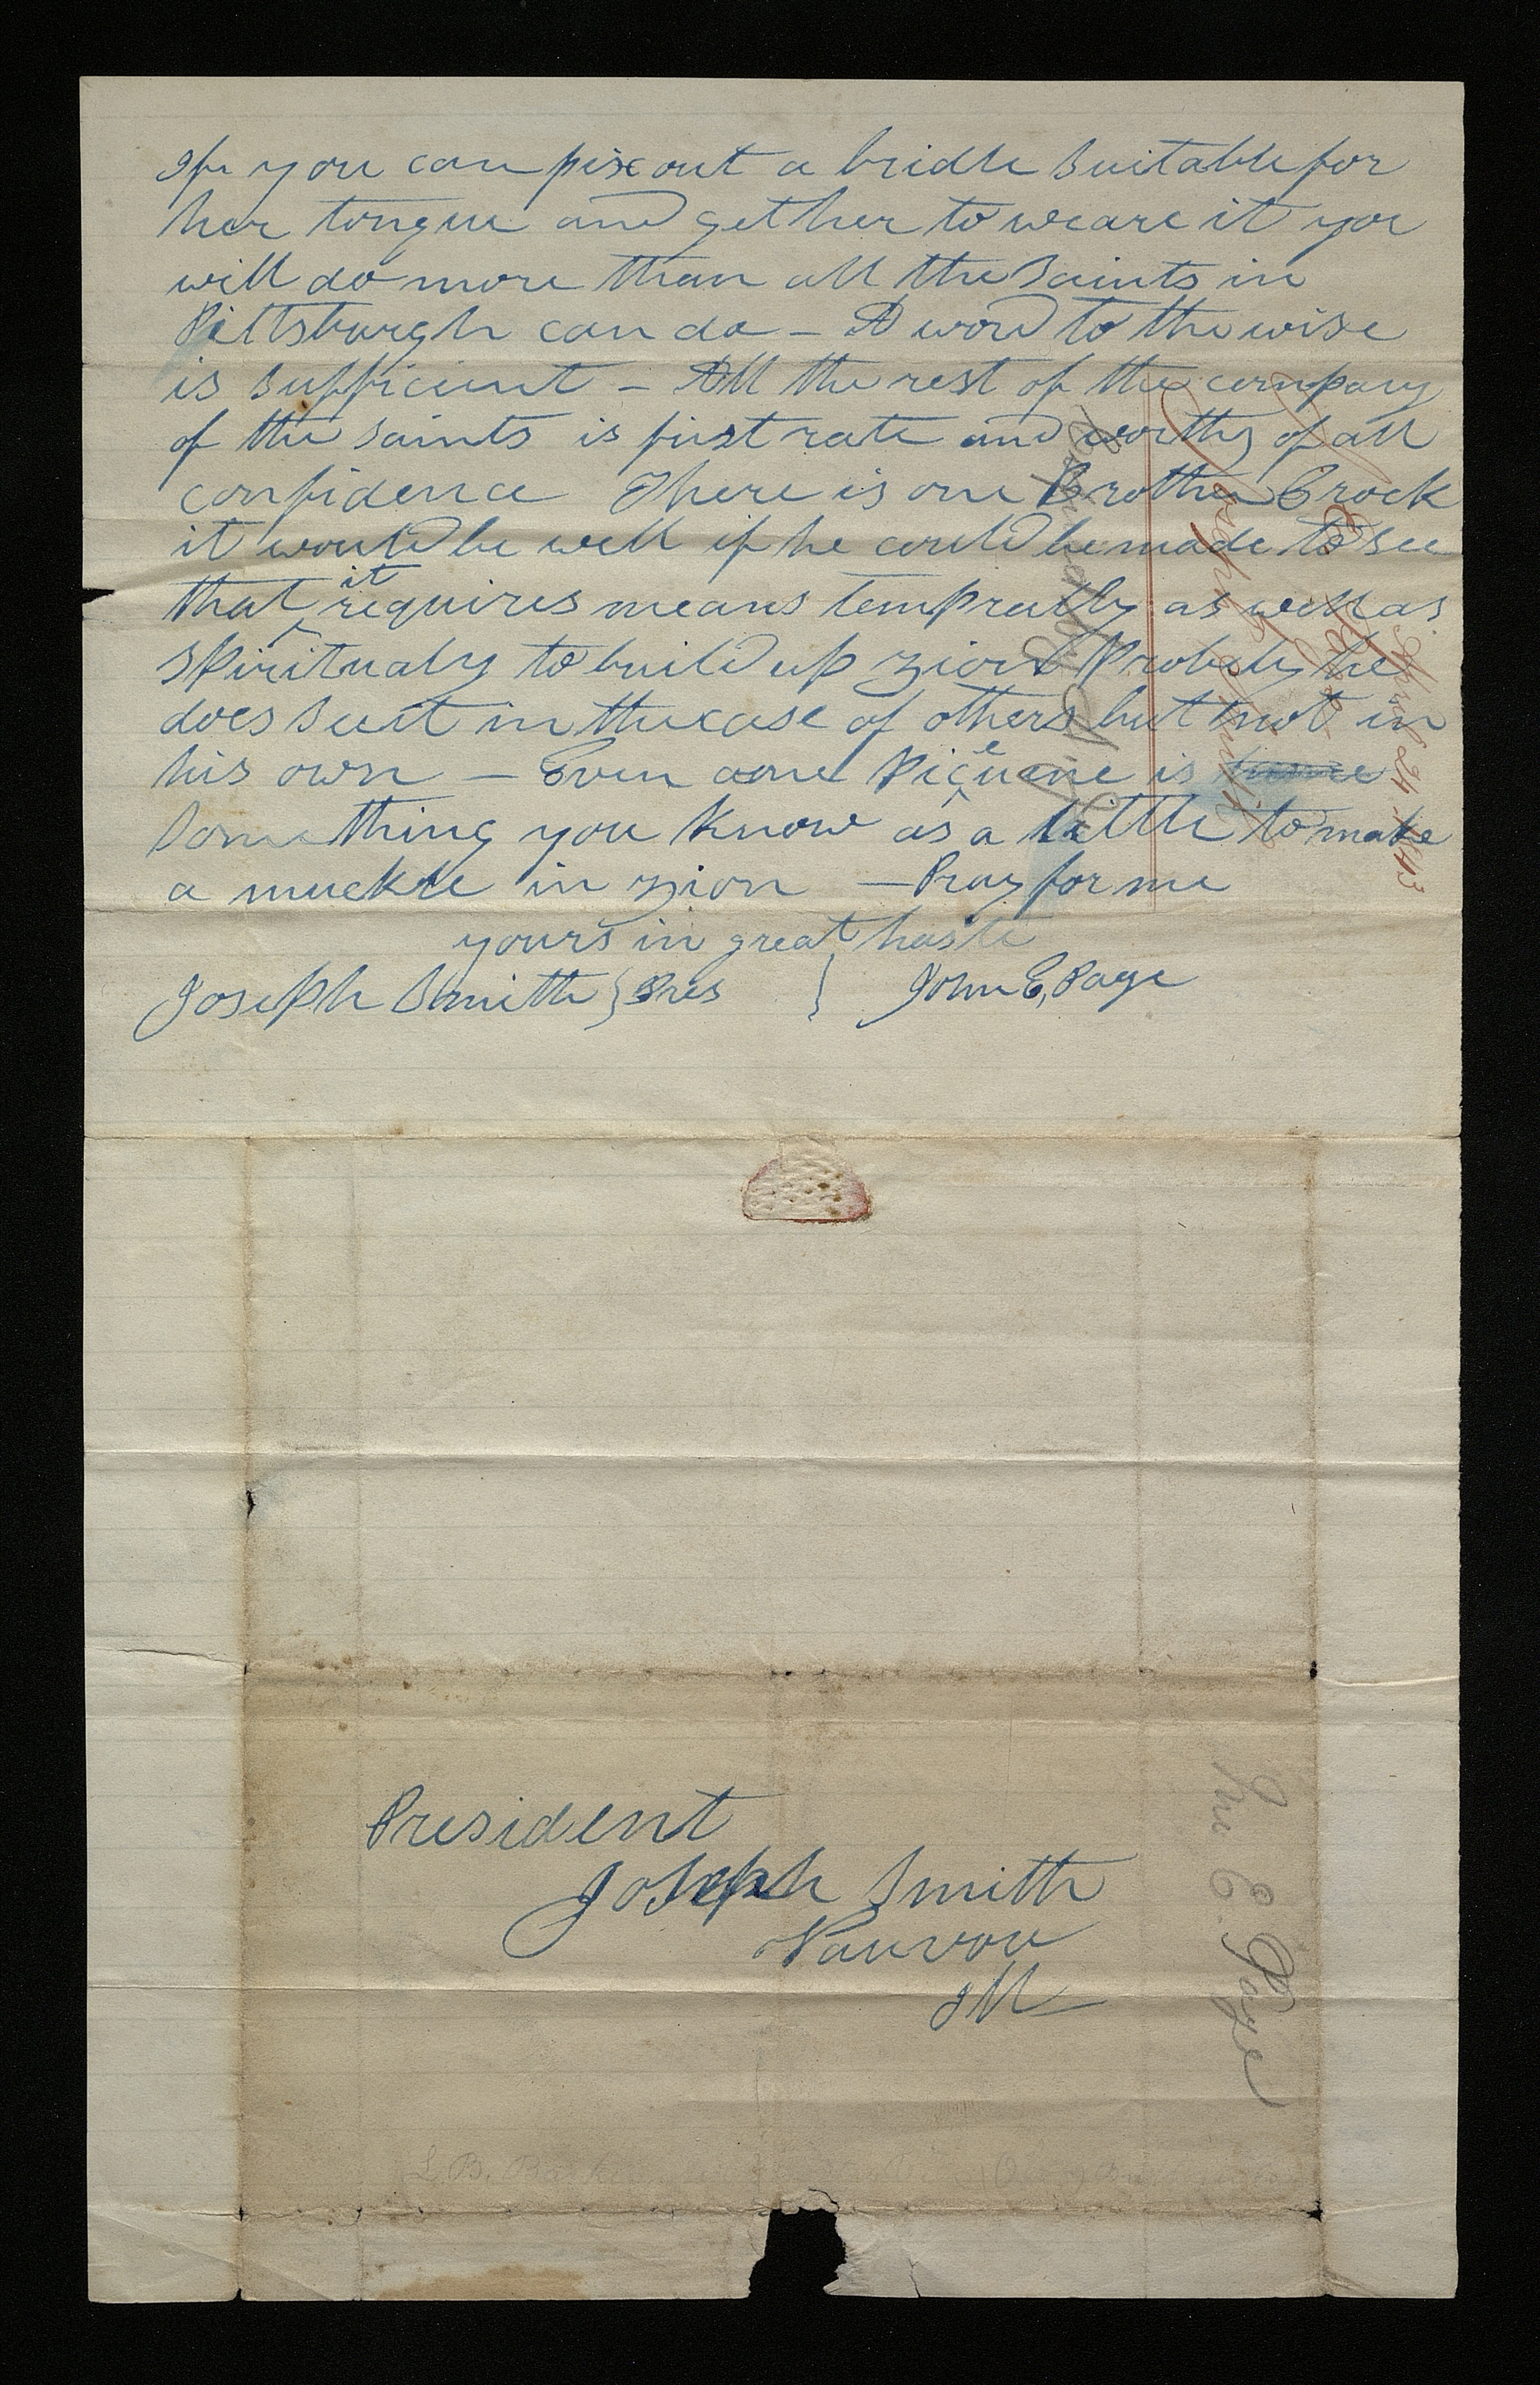 If you can pix out a bridle suitable for
her tongue and get her to weare it you
will do more than all the saints in
Pittsburgh can do – A word to the wise
is sufficient – All the rest of the company
of the saints is first rate and worthy of all
confidence There is one Brother Crock
it would be well if he could be made to see
that it requires means tempraly as well as
spiritualy to build up zion Probely he
does see it in the case of others but not in
his own – Even one Piceune is
something you know as a little to make
a muckle in zion – Pray for me
yours in great haste
Joseph Smith } Pres } John E, Page
Joseph Smith
April 24 1843
President
Joseph Smith
Nauvou
Ill
Jno E. Page
L. B.